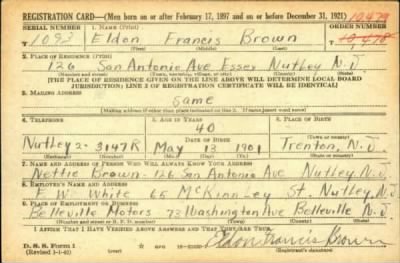 REGISTRATION CARD—(Men born on or after February 17, 1897 and on or before December 31, 1921) 10,479
SERIAL NUMBER 1. NAME (Print) ORDER NUMBER
T 1093 Eldon Francis Brown 10,478
(First) (Middle) (Last)
2. PLACE OF RESIDENCE (Print)
126 San Antonio Ave Essex Nutley N. J.
(Number and street) (Town, township, village, or city) (County) (State)
[THE PLACE OF RESIDENCE GIVEN ON THE LINE ABOVE WILL DETERMINE LOCAL BOARD
JURISDICTION; LINE 2 OF REGISTRATION CERTIFICATE WILL BE IDENTICAL]
3. MAILING ADDRESS
Same
[Mailing address if other than place indicated on line 2. If same insert word same]
4. TELEPHONE 5. AGE IN YEARS 6. PLACE OF BIRTH
40
DATE OF BIRTH (Town or county)
Nutley 2- 3147R May 13 1901 Trenton, N. J.
(Exchange) (Number) (Mo.) (Day) (Yr.) (State or country)
7. NAME AND ADDRESS OF PERSON WHO WILL ALWAYS KNOW YOUR ADDRESS
Nettie Brown - 126 San Antonio Ave Nutley N. J.
8. EMPLOYER'S NAME AND ADDRESS
E. W. White 65 McKinnley St. Nutley N. J.
9. PLACE OF EMPLOYMENT OR BUSINESS
Belleville Motors 73 Washington Ave Belleville N. J.
(Number and street or R. F. D. number) (Town) (County) (State)
I AFFIRM THAT I HAVE VERIFIED ABOVE ANSWERS AND THAT THEY ARE TRUE.
D. S. S. Form 1
(Revised 1-1-42) (over) Eldon Francis Brown